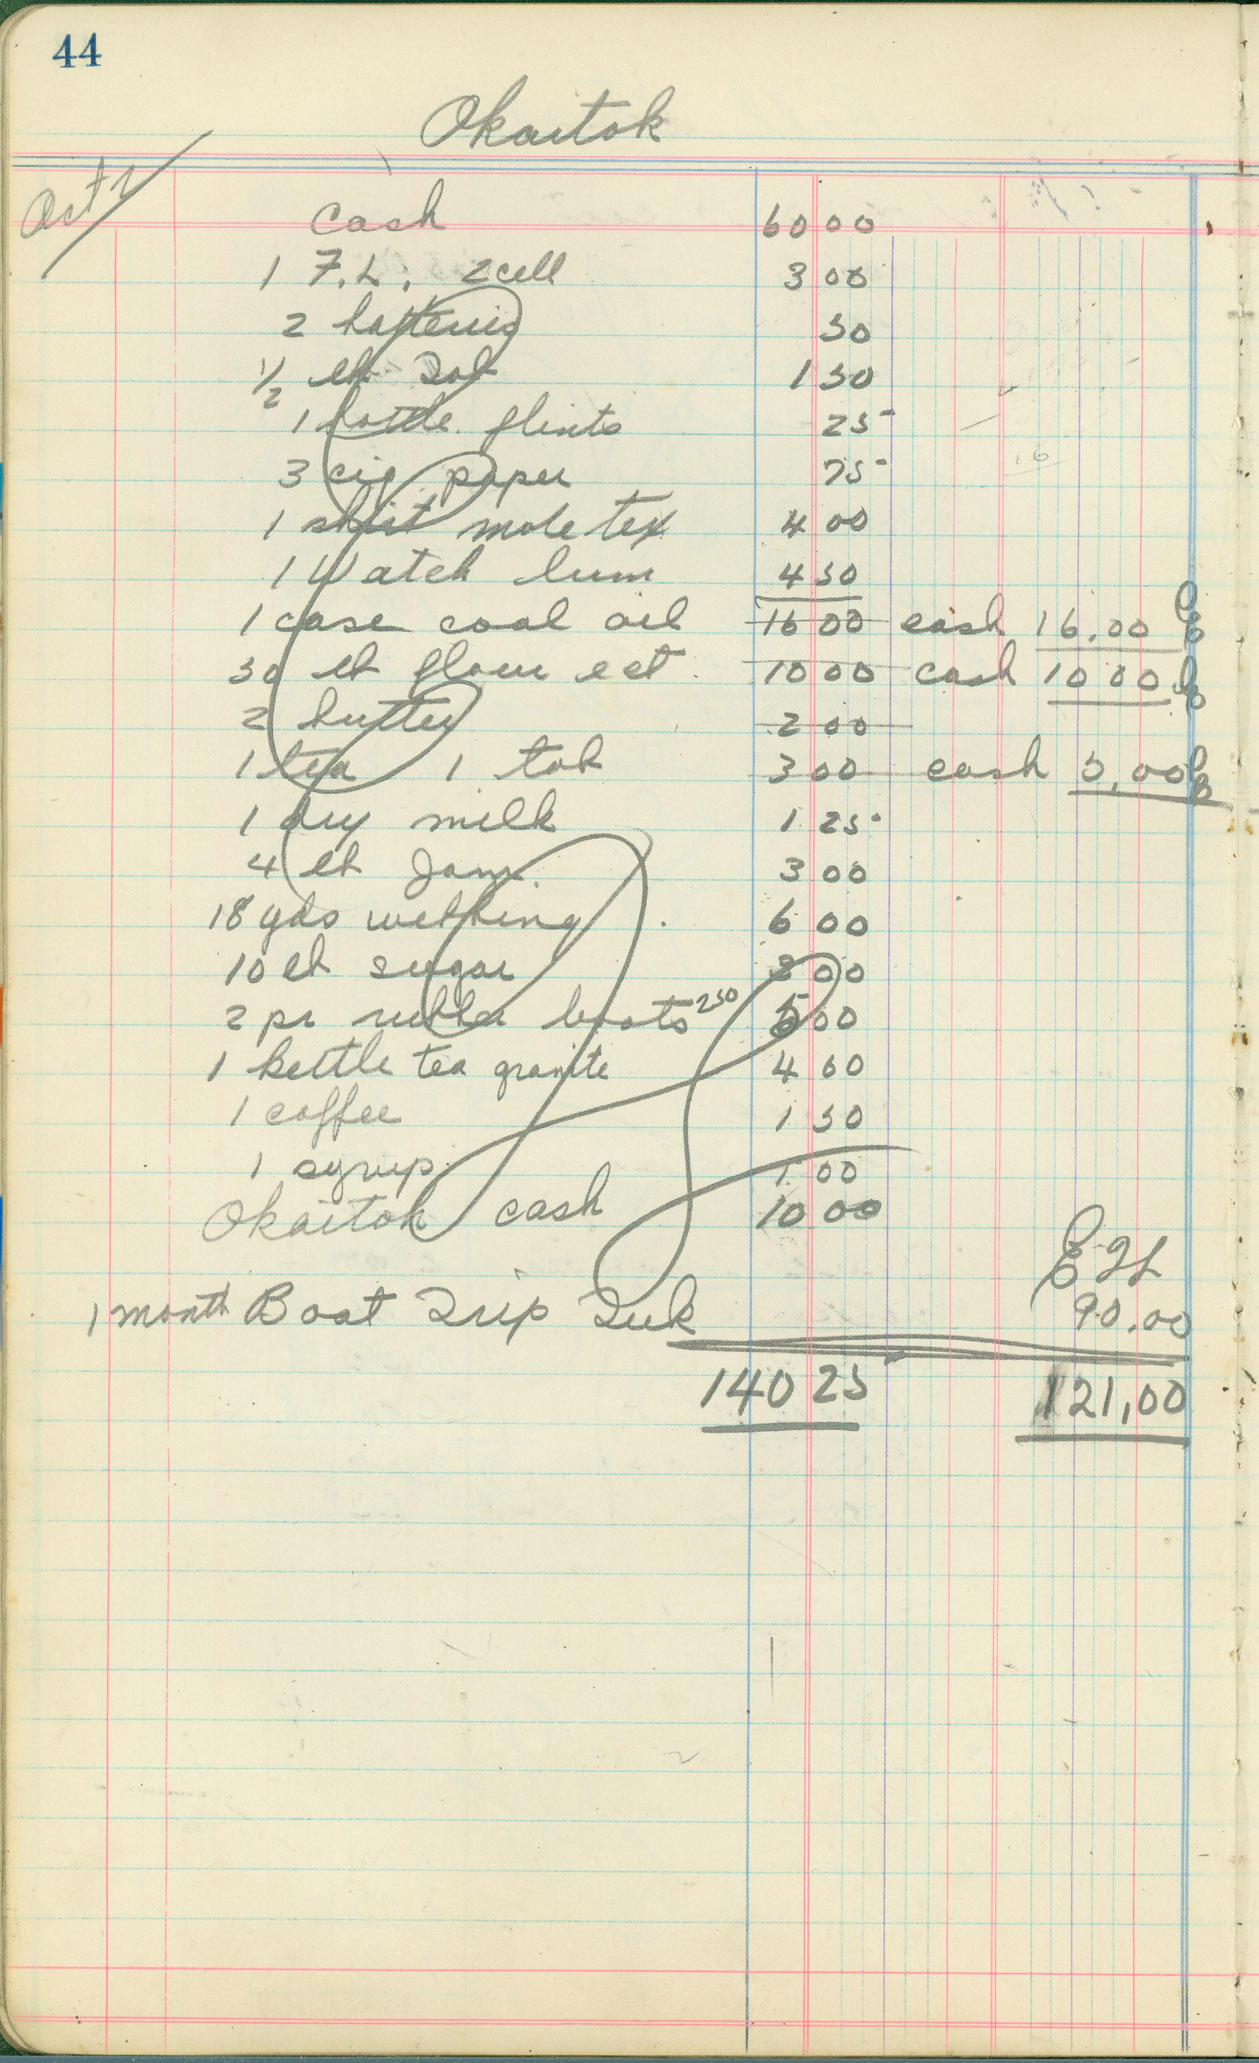 44
Okaitok
Oct 1
Cash 60 00
1 F.L. 2 cell 3 00
2 batteries 50
1/2 lb Tob 1 50
1 bottle flints 25
3 cig paper 75
1 shirt mole tex 4 00
1 Watch lum 4 50
1 case coal oil 16 00 cash 16.00
30 lb flour ect 10 00 cash 10 00
2 butter 2 00
1 tea 1 tob 3 00 cash 5,00
1 dry milk 1 25
4 lb Jam 3 00
18 yds webbing 6 00
10 lb sugar 3 00
2 pr rubber boots 250 5 00
1 kettle tea granite 4 00
1 coffee 1 50
1 syrup 1 00
Okaitok cash 10 00
1 month Boat Trip Tuk 90.00
140 25 121,00